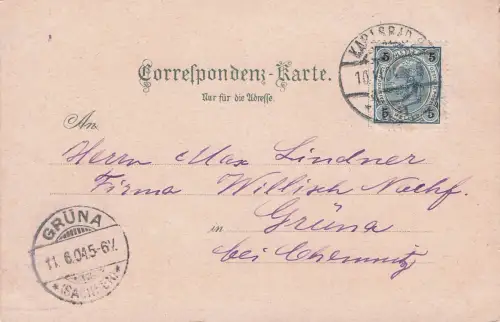 KARLSBAD
10.
5 5
5 5
Correspondenz-Karte.
Nur für die Adresse.
An
Herrn Max Lindner
Firma Willisch Nachf.
in Grüna
bei Chemnitz
GRÜNA
11.6.04.5-6N.
*(SACHSEN)*